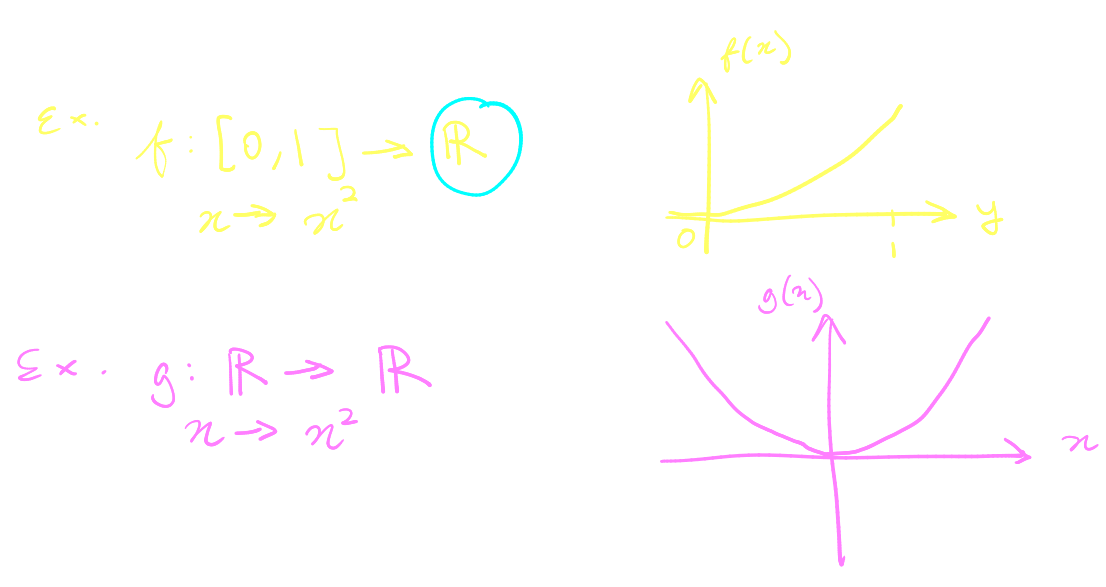 Ex. f: [0,1] → ℝ
x → x²
f(x)
0
1
y
Ex. g: ℝ → ℝ
x → x²
g(x)
x